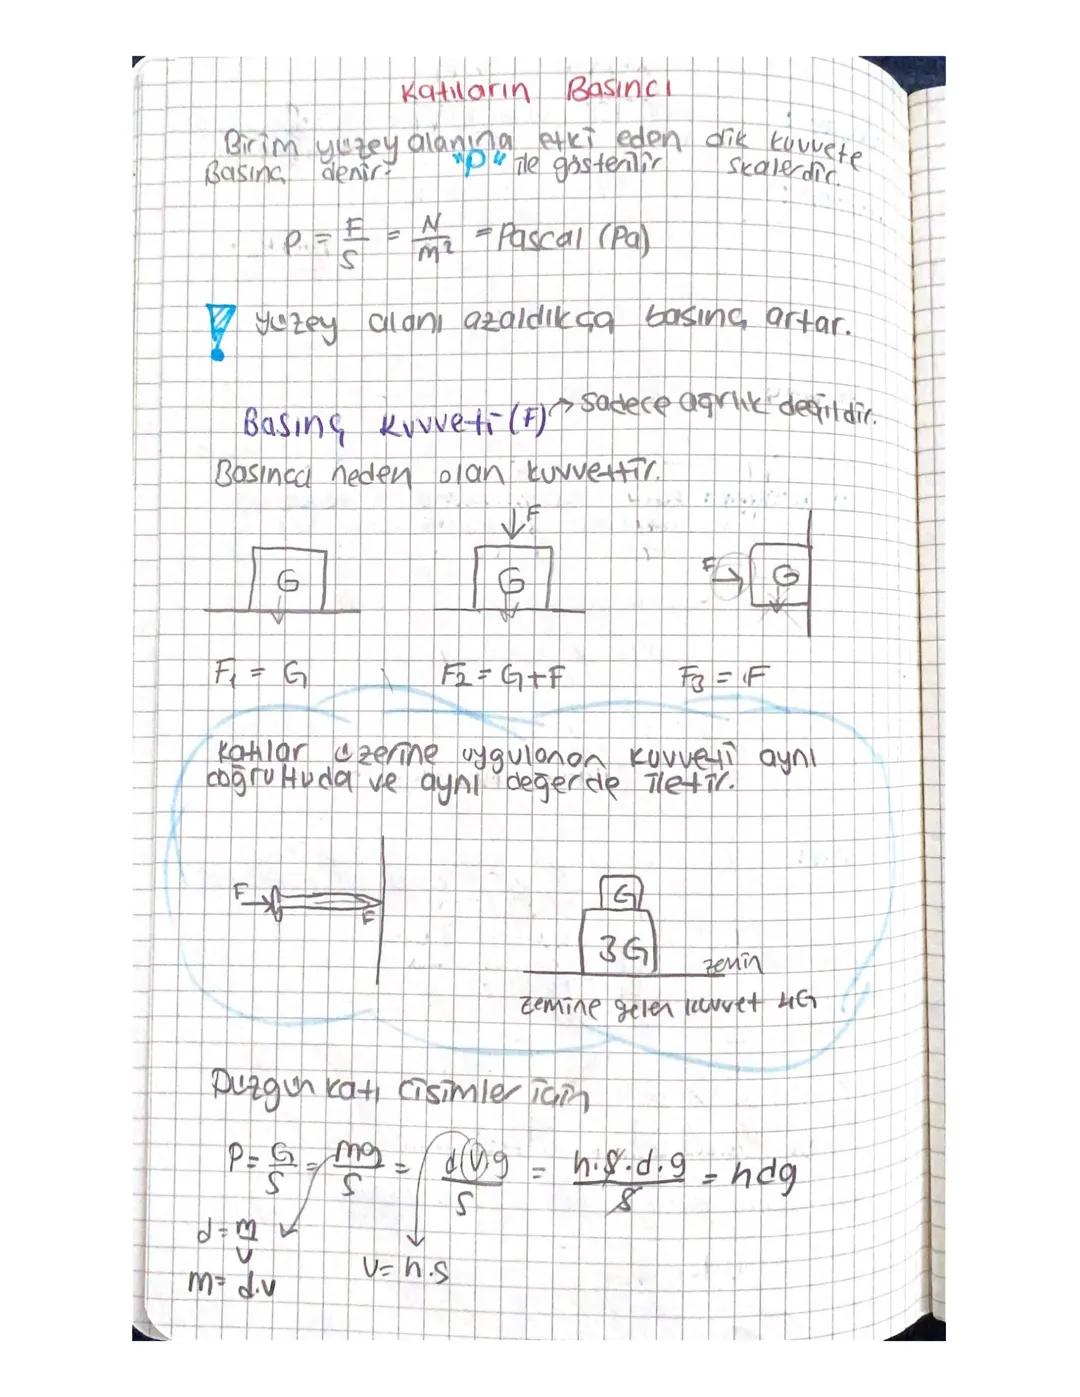 Katıların Basıncı
Birim yüzey alanına etki eden dik kuvvete
Basınç denir. "P" ile gösterilir skalerdir.
P = F/S = N/m² = Pascal (Pa)
! yüzey alanı azaldıkça basınç artar.
Basınç Kuvveti (F) → Sadece ağırlık değildir.
Basınca neden olan kuvvettir.
F
G G F G
F₁ = G F₂ = G+F F₃ = F
Katılar üzerine uygulanan kuvveti aynı
doğrultuda ve aynı değerde iletir.
F F
G
3G zemin
zemine gelen kuvvet 4G
Düzgün katı cisimler için
P = G/S = mg/S = d.V.g/S = h.S.d.g/S = hdg
d = m/V
V = h.S
m = d.v